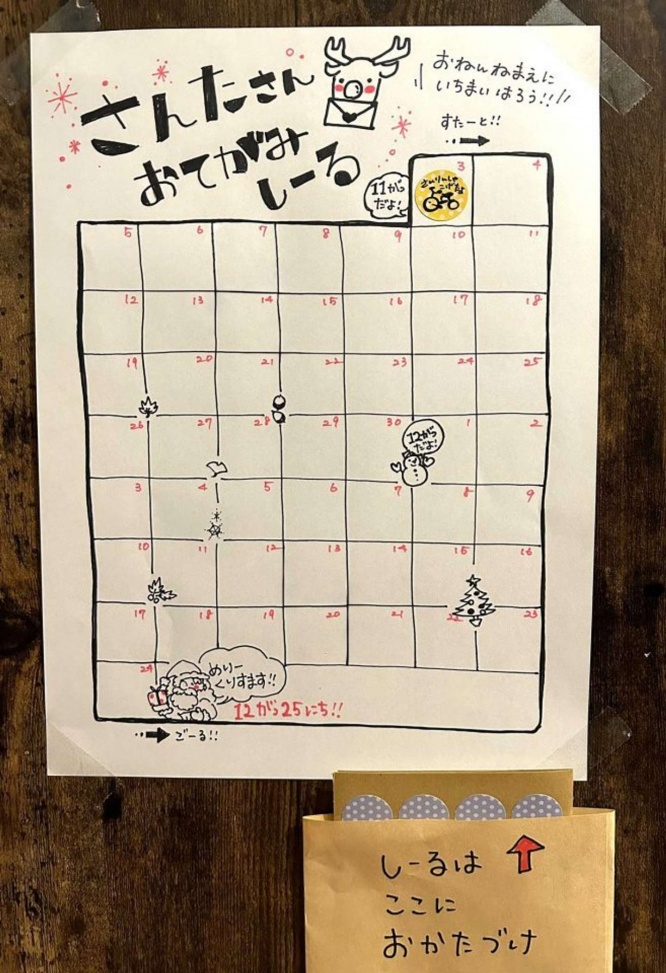 さんたさん
おてがみ
しーる
おねんねまえに
いちまいはろう!!
すたーと!!
11がつ
だよ!
3 4
5 6 7 8 9 10 11
12 13 14 15 16 17 18
19 20 21 22 23 24 25
26 27 28 29 30 1 2
12がつ
だよ!
3 4 5 6 7 8 9
10 11 12 13 14 15 16
17 18 19 20 21 22 23
24
めりー
くりすます!!
12がつ25にち!!
ごーる!!
しーるは
ここに
おかたづけ